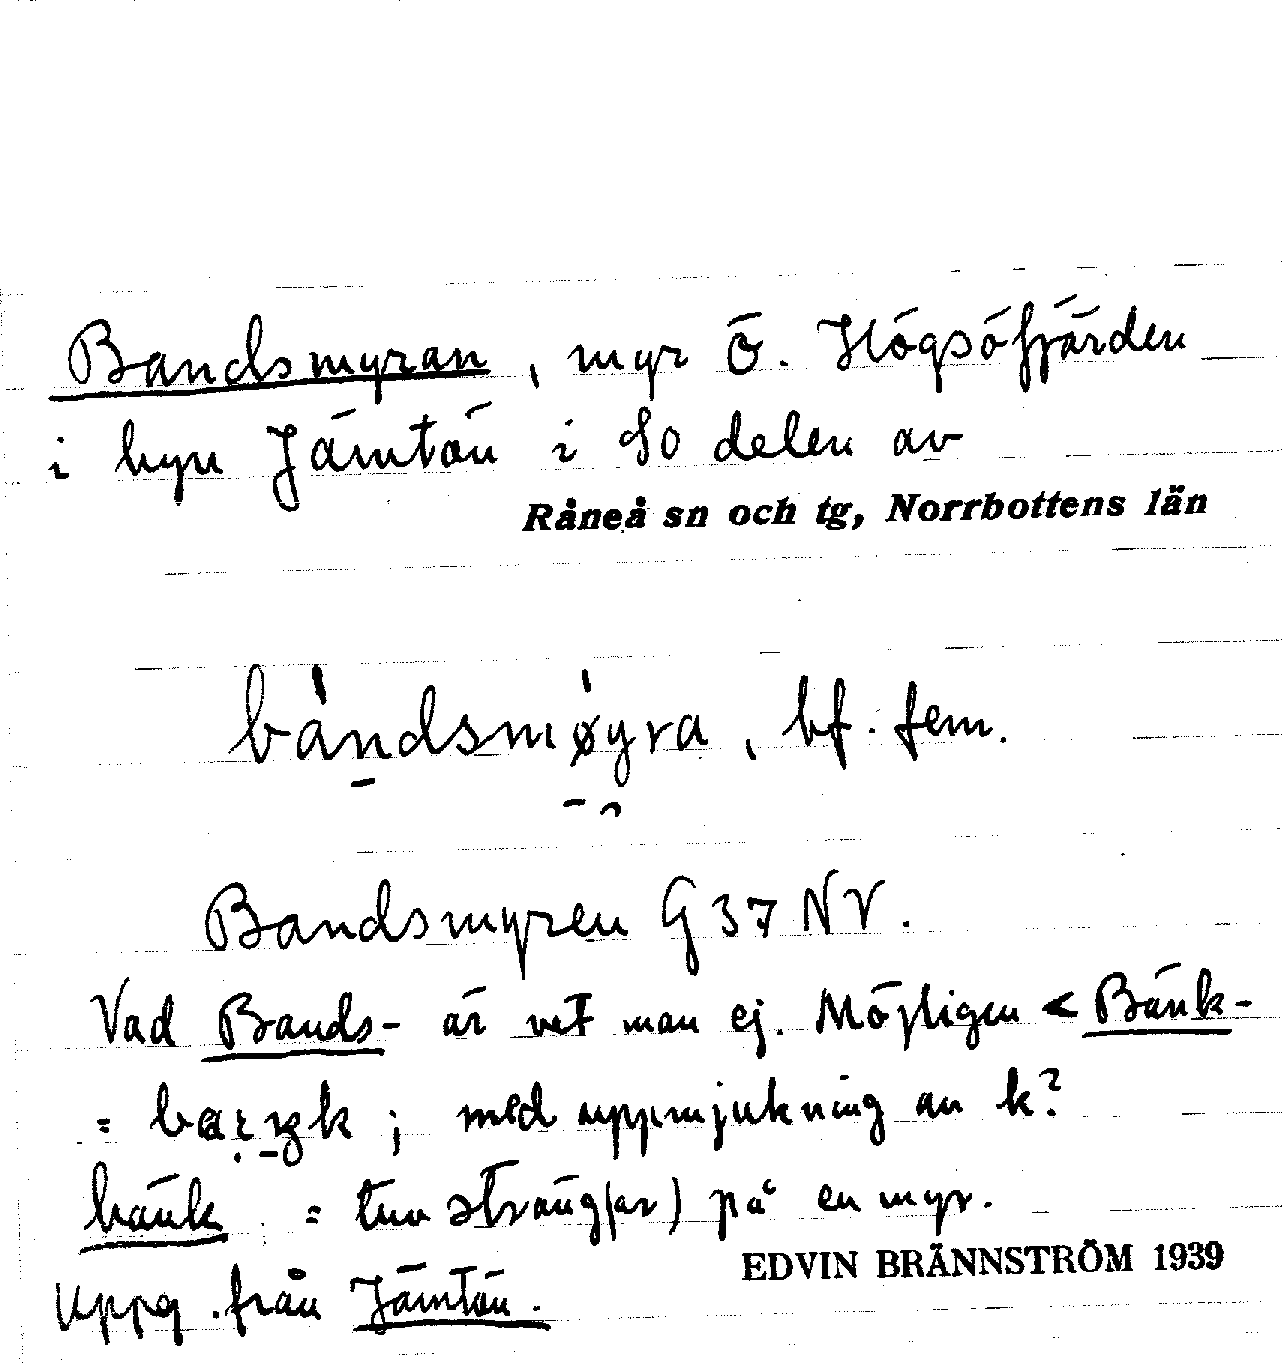 Bandsmyran, myr Ö. Högsöfjärden
i byn Jämtön i SO delen av
Råneå sn och tg, Norrbottens län
bandsmøyra, bf. fem.
Bandsmyren G 37 NV.
Vad Bands- är vet man ej. Möjligen < Bänk-
= ; med uppmjukning av k?
bänk = tuv sträng(ar) på en myr.
EDVIN BRÄNNSTRÖM 1939
Uppg. från Jämtön.